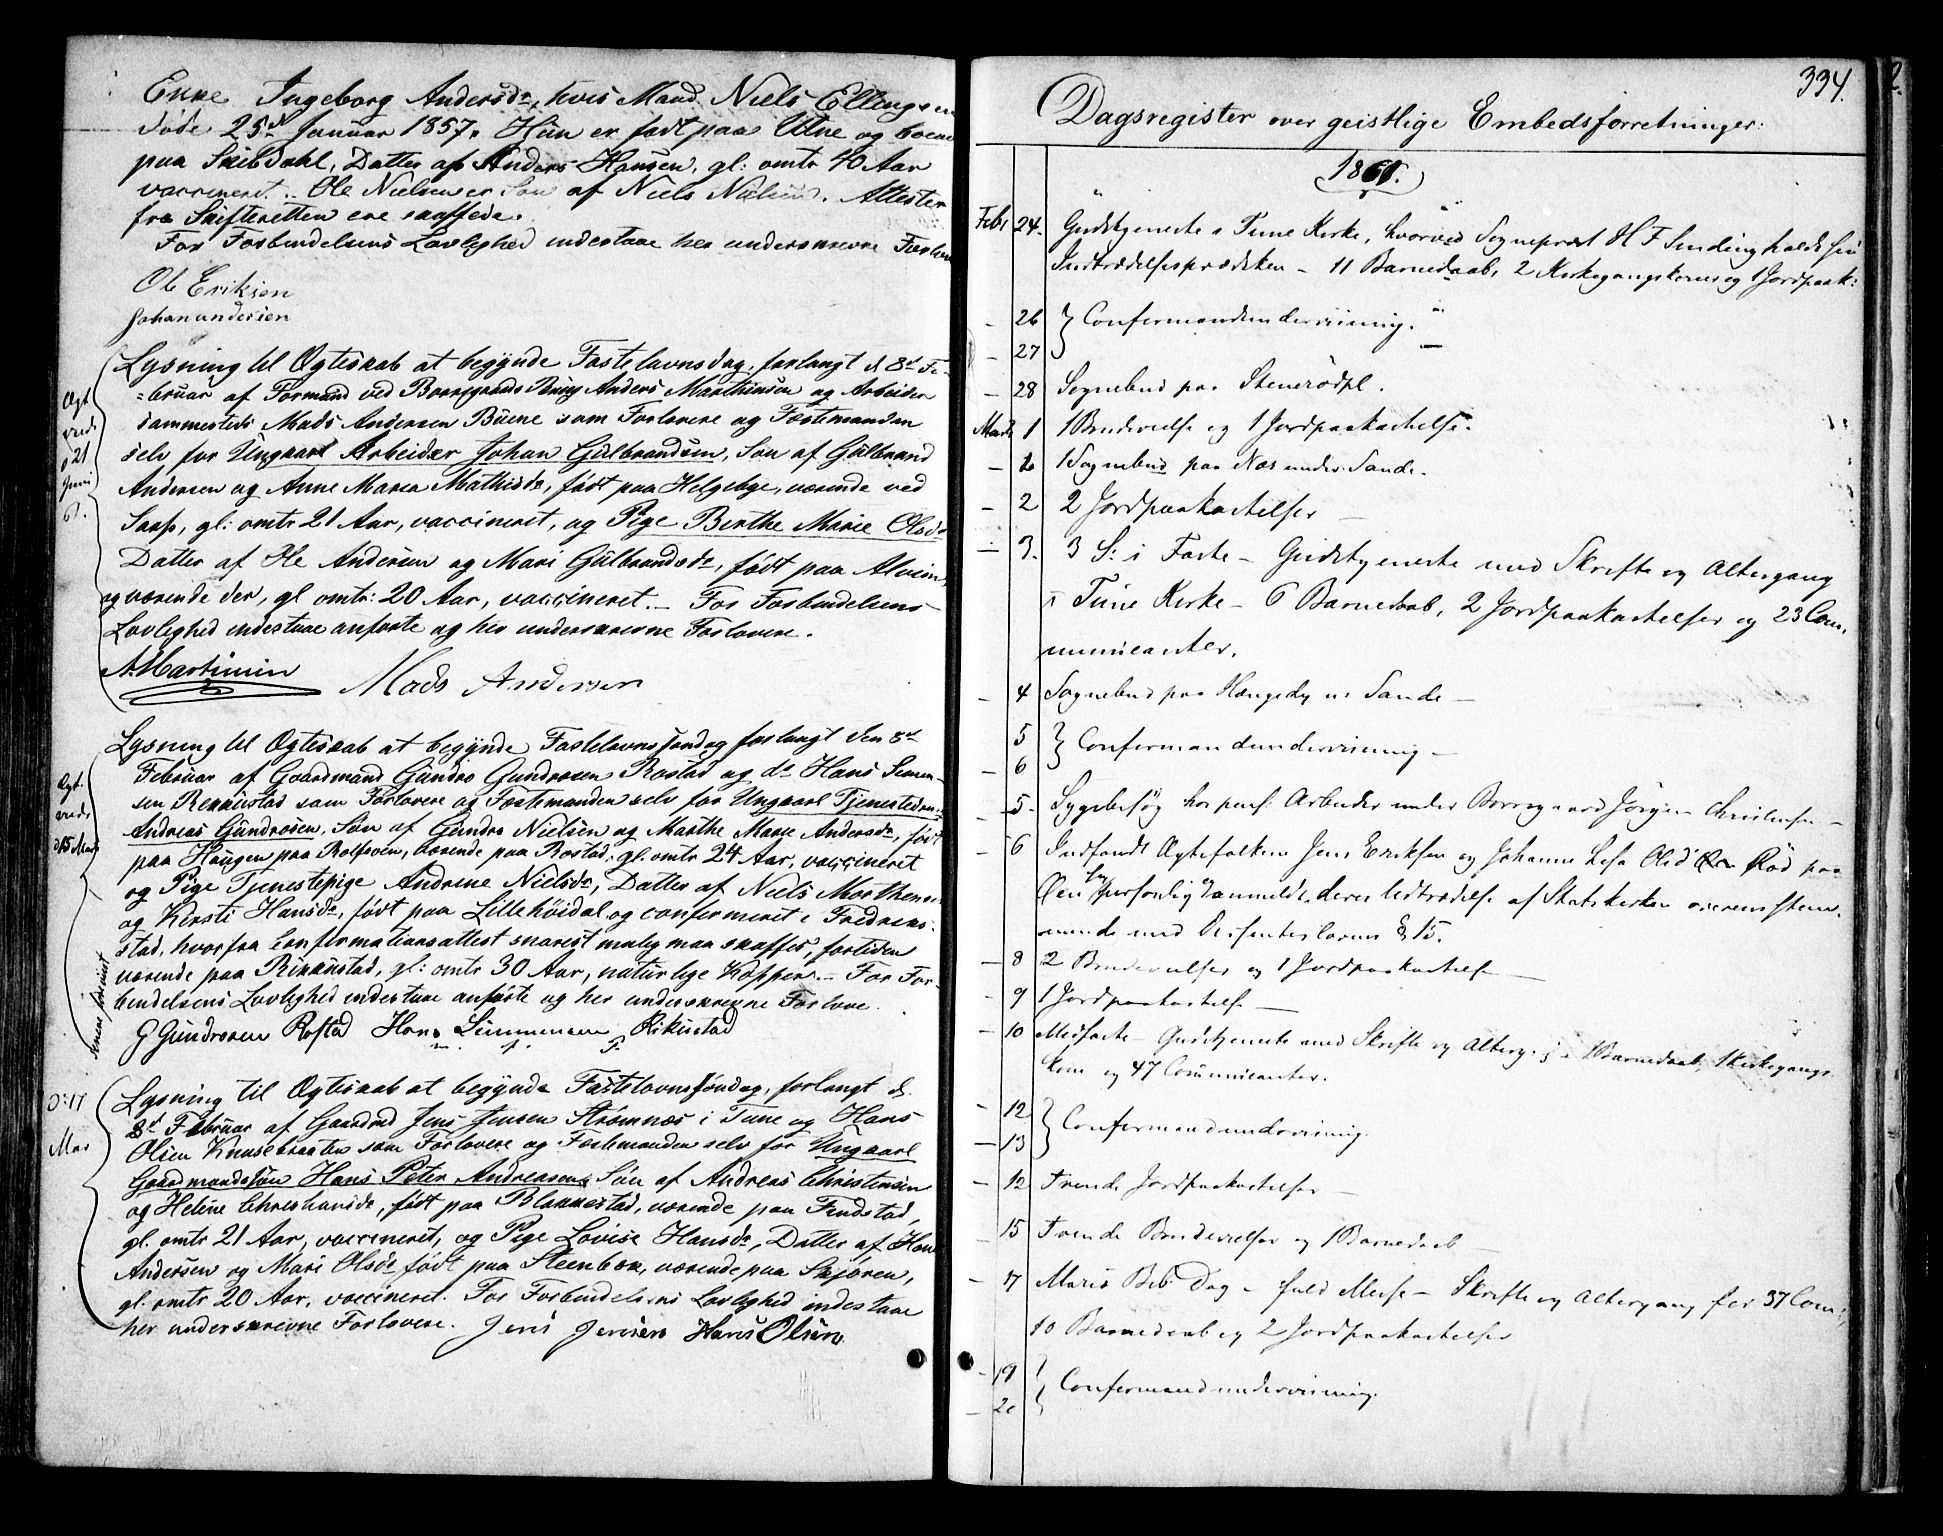 Enke Ingeborg Andersdr, hvis Mand Niels Ellingsen
døde 25d Januar 1857. Hun er født paa Utne og boende
paa Skibdahl, Datter af Anders Hansen, gl: omtr 40 Aar
vaccineret. Ole Nielsen er Søn af Niels Nielsen. Attester
fra Skifteretten ere skaffede.
For Forbindelsens Lovlighed indestaae her underskrevne Forlovere
Ole Eriksen
Johan andersen
Lysning til Ægteskab at begynde Fastelavnsdag, forlangt d 8d Fe-
bruar af Formand ved Borregaards Brug Anders Marthinsen og Arbeider
sammesteds Mads Andersen Buene som Forlovere og Fæstemanden
selv for Ungkarl Arbeider Johan Gulbrandsen, Søn af Gulbrand
Andersen og Anne Maria Mathisdr, født paa Helgebye, værende ved
Sarp, gl: omtr 21 Aar, vaccineret, og Pige Berthe Marie Olsdr
Datter af Ole Andersen og Mari Gulbrandsdr, født paa Alvim,
og værende der, gl omtr: 20 Aar, vaccineret. – For Forbindelsens
Lovlighed indestaae anførte og her underskrevne Forlovere.
Ægt
viede
d 21
Juni
61.
A. Martinsen Mads Andersen
Lysning til Ægteskab at begynde Fastelavnssøndag forlangt den 8d
Februar af Gaardmand Gundro Gundrosen Rostad og do Hans Simen-
sen Rikkustad som Forlovere og Fæstemanden selv for Ungkarl Tjenestedreng
Andreas Gundrosen, Søn af Gundro Nielsen og Marthe Marie Andersdr, født
paa Haugen paa Rolfsøen, værende paa Rostad, gl. omtr 24 Aar, vaccineret
og Pige Tjenestepige Andrine Nielsdr, Datter af Niels Morthensen
og Kirsti Hansdr, født paa Lillehöidal og confirmeret i Fredriks-
stad, hvorfra Confirmationsattest snarest mulig maa skaffes, fortiden
værende paa Rikkustad, gl: omtr 30 Aar, naturlige Kopper. – For For-
bindelsens Lovlighed indestaae anførte og her underskrevne Forlovere.
Ægt.
viede
d 15 Marts
G Gundrosen Rostad Hans Simmensen Rikustad
m. f. P.
Lysning til Ægteskab at begynde Fastelavnssøndag, forlangt d.
8d Februar af Gaardmd Jens Jensen Strømnæs i Tune og Hans
Olsen Knusebraaten som Forlovere og Fæstemanden selv for Ungkarl
Gaardmandssøn Hans Peter Andreasen, Søn af Andreas Christensen
og Helene Christiansdr, født paa Blakkestad, værende paa Findstad,
gl. omtr 21 Aar, vaccineret, og Pige Lovise Hansdr, Datter af Hans
Andersen og Mari Olsdr født paa Steenbæk, værende paa Skjøren,
gl. omtr 20 Aar, vaccineret. For Forbindelsens Lovlighed indestaae
her underskrevne Forlovere. Jens Jensen Hans Olsen
D: 17
Mar
334.
Dagsregister over geistlige Embedsforretninger:
1861.
Febr 24. Gudstjeneste i Tune Kirke, hvorved Sognepræst H F Sinding holdt sin
Indtrædelsesprædiken – 11 Barnedaab, 2 Kirkegangskoner og 1 Jordpaak:
– 26 } Confirmandundervisning.
– 27
– 28 Sognebud paa Stenerödpl.
Marts 1 1 Brudevielse og 1 Jordpaakastelse.
– 2 1 Sognebud paa Næs under Sande.
– 2 2 Jordpaakastelser –
– 3. 3 S: i Faste – Gudstjeneste med Skrifte og Altergang
i Tune Kirke – 6 Barnedaab, 2 Jordpaakastelser og 23 Com-
municanter.
– 4 Sognebud paa Hængedy u: Sande –
5 } Confirmandundervisning –
– 6
– 5. Sygebesøg hos Arbeider under Borregaard Jørgen Christensen –
– 6 Indfandt Ægtefolkene Jens Eriksen og Johanne Olsdr Rød paa
Øen sig personlig og anmeldte deres Udtrædelse af Statskirken overensstem-
mende med Dissenterloven § 15.
– 8 2 Brudevielser og 1 Jordpaakastelse –
– 9 1 Jordpaakastelse –
– 10 Midfaste – Gudstjeneste med Skrifte og Alterg. – 1 Barnedaab, 1 Kirkegangs-
kone og 47 Communicanter.
– 12 } Confirmandundervisning.
– 13
– 12 Trende Jordpaakastelser –
15 Trende Brudevielser og 1 Barnedaab –
– 17 Mariæ Beb: Dag – fuld Messe – Skrifte og Altergang for 37 Com:,
10 Barnedaab og 2 Jordpaakastelser
– 19 } Confirmandundervisning.
– 20